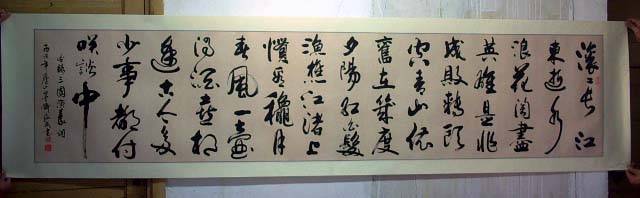 滚〻長江
東逝水
浪花淘盡
英雄是非
成敗轉頭
空青山依
舊在幾度
夕陽紅白髮
漁樵江渚上
慣看穐月
春風一壺
濁酒喜相
逢古今多
少事都付
咲談中
三國演義詞